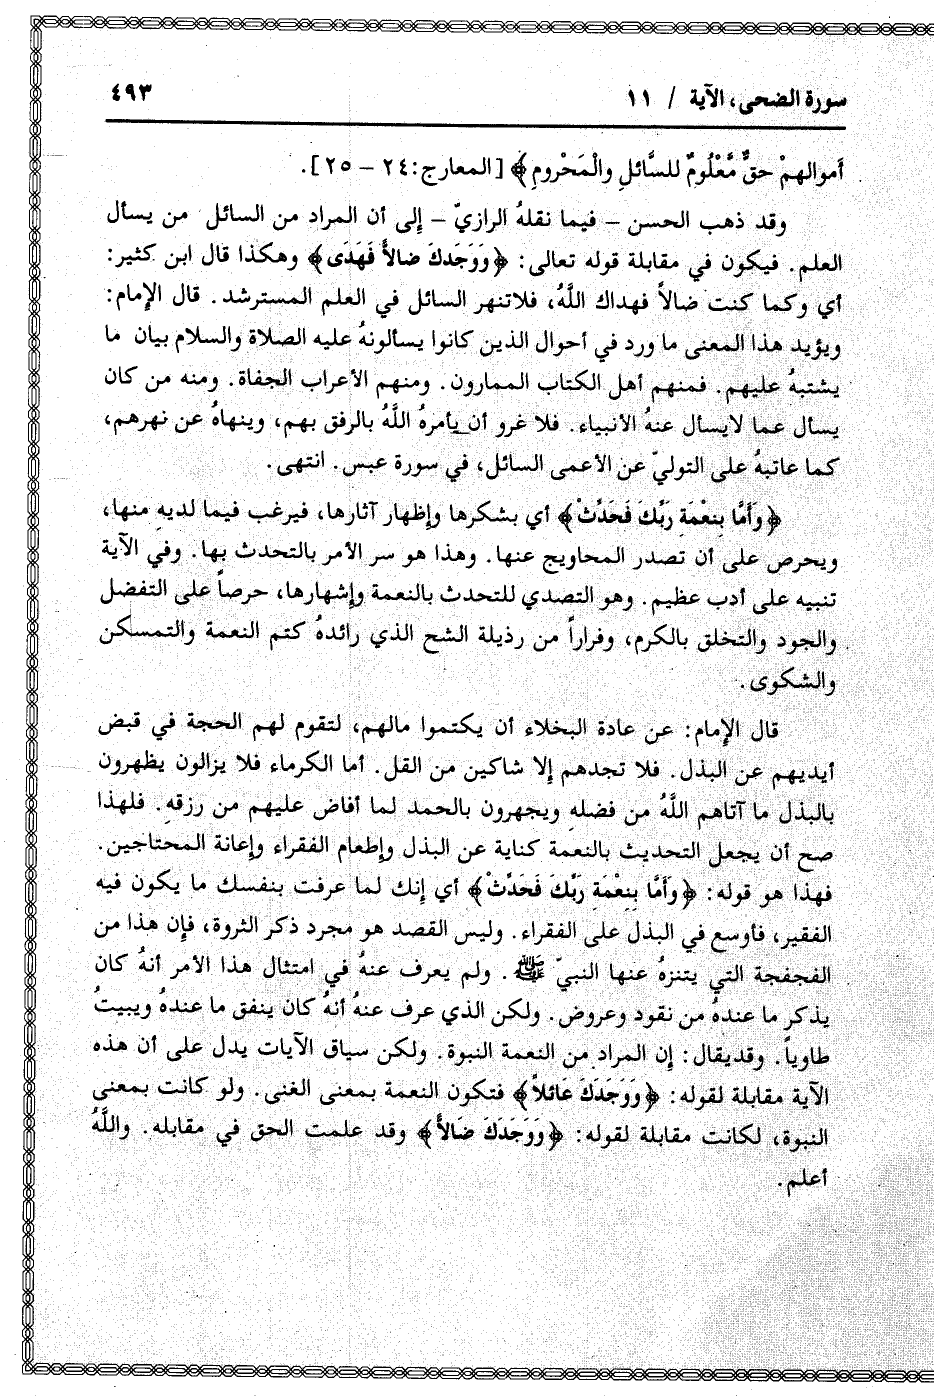 سورة الضحى، الآية / ١١
٤٩٣
أموالهمْ حقٌّ مَّعْلُومٌ للسَّائلِ والْمَحْرومِ﴾ [المعارج: ٢٤ – ٢٥].
وقد ذهب الحسن – فيما نقلهُ الرازيّ – إلى أن المراد من السائل من يسأل
العلم. فيكون في مقابلة قوله تعالى: ﴿وَوَجَدكَ ضالاًّ فَهَدَى﴾ وهكذا قال ابن كثير:
أي وكما كنت ضالاً فهداك اللَّهُ، فلاتنهر السائل في العلم المسترشد. قال الإمام:
ويؤيد هذا المعنى ما ورد في أحوال الذين كانوا يسألونهُ عليه الصلاة والسلام بيان ما
يشتبهُ عليهم. فمنهم أهل الكتاب الممارون. ومنهم الأعراب الجفاة. ومنه من كان
يسأل عما لايسأل عنهُ الأنبياء. فلا غرو أن يأمرهُ اللَّهُ بالرفق بهم، وينهاهُ عن نهرهم،
كما عاتبهُ على التوليّ عن الأعمى السائل، في سورة عبس. انتهى.
﴿وَأَمَّا بِنعْمَةِ رَبِّكَ فَحَدِّثْ﴾ أي بشكرها وإظهار آثارها، فيرغب فيما لديهِ منها،
ويحرص على أن تصدر المحاويج عنها. وهذا هو سر الأمر بالتحدث بها. وفي الآية
تنبيه على أدب عظيم. وهو التصدي للتحدث بالنعمة وإشهارها، حرصاً على التفضل
والجود والتخلق بالكرم، وفراراً من رذيلة الشح الذي رائدهُ كتم النعمة والتمسكن
والشكوى.
قال الإمام: عن عادة البخلاء أن يكتموا مالهم، لتقوم لهم الحجة في قبض
أيديهم عن البذل. فلا تجدهم إلا شاكين من القل. أما الكرماء فلا يزالون يظهرون
بالبذل ما آتاهم اللَّهُ من فضلهِ ويجهرون بالحمد لما أفاض عليهم من رزقهِ. فلهذا
صح أن يجعل التحديث بالنعمة كناية عن البذل وإطعام الفقراء وإعانة المحتاجين.
فهذا هو قوله: ﴿وَأَمَّا بِنِعْمَةِ رَبِّكَ فَحَدِّثْ﴾ أي إنك لما عرفت بنفسك ما يكون فيه
الفقير، فأوسع في البذل على الفقراء. وليس القصد هو مجرد ذكر الثروة، فإن هذا من
الفجفجة التي يتنزهُ عنها النبيّ ﷺ. ولم يعرف عنهُ في امتثال هذا الأمر أنهُ كان
يذكر ما عندهُ من نقود وعروض. ولكن الذي عرف عنهُ أنهُ كان ينفق ما عندهُ ويبيتُ
طاوياً. وقديقال: إن المراد من النعمة النبوة. ولكن سياق الآيات يدل على أن هذه
الآية مقابلة لقوله: ﴿وَوَجَدَكَ عَائلاً﴾ فتكون النعمة بمعنى الغنى. ولو كانت بمعنى
النبوة، لكانت مقابلة لقوله: ﴿وَوَجَدَكَ ضَالاًّ﴾ وقد علمت الحق في مقابله. واللَّهُ
أعلم.